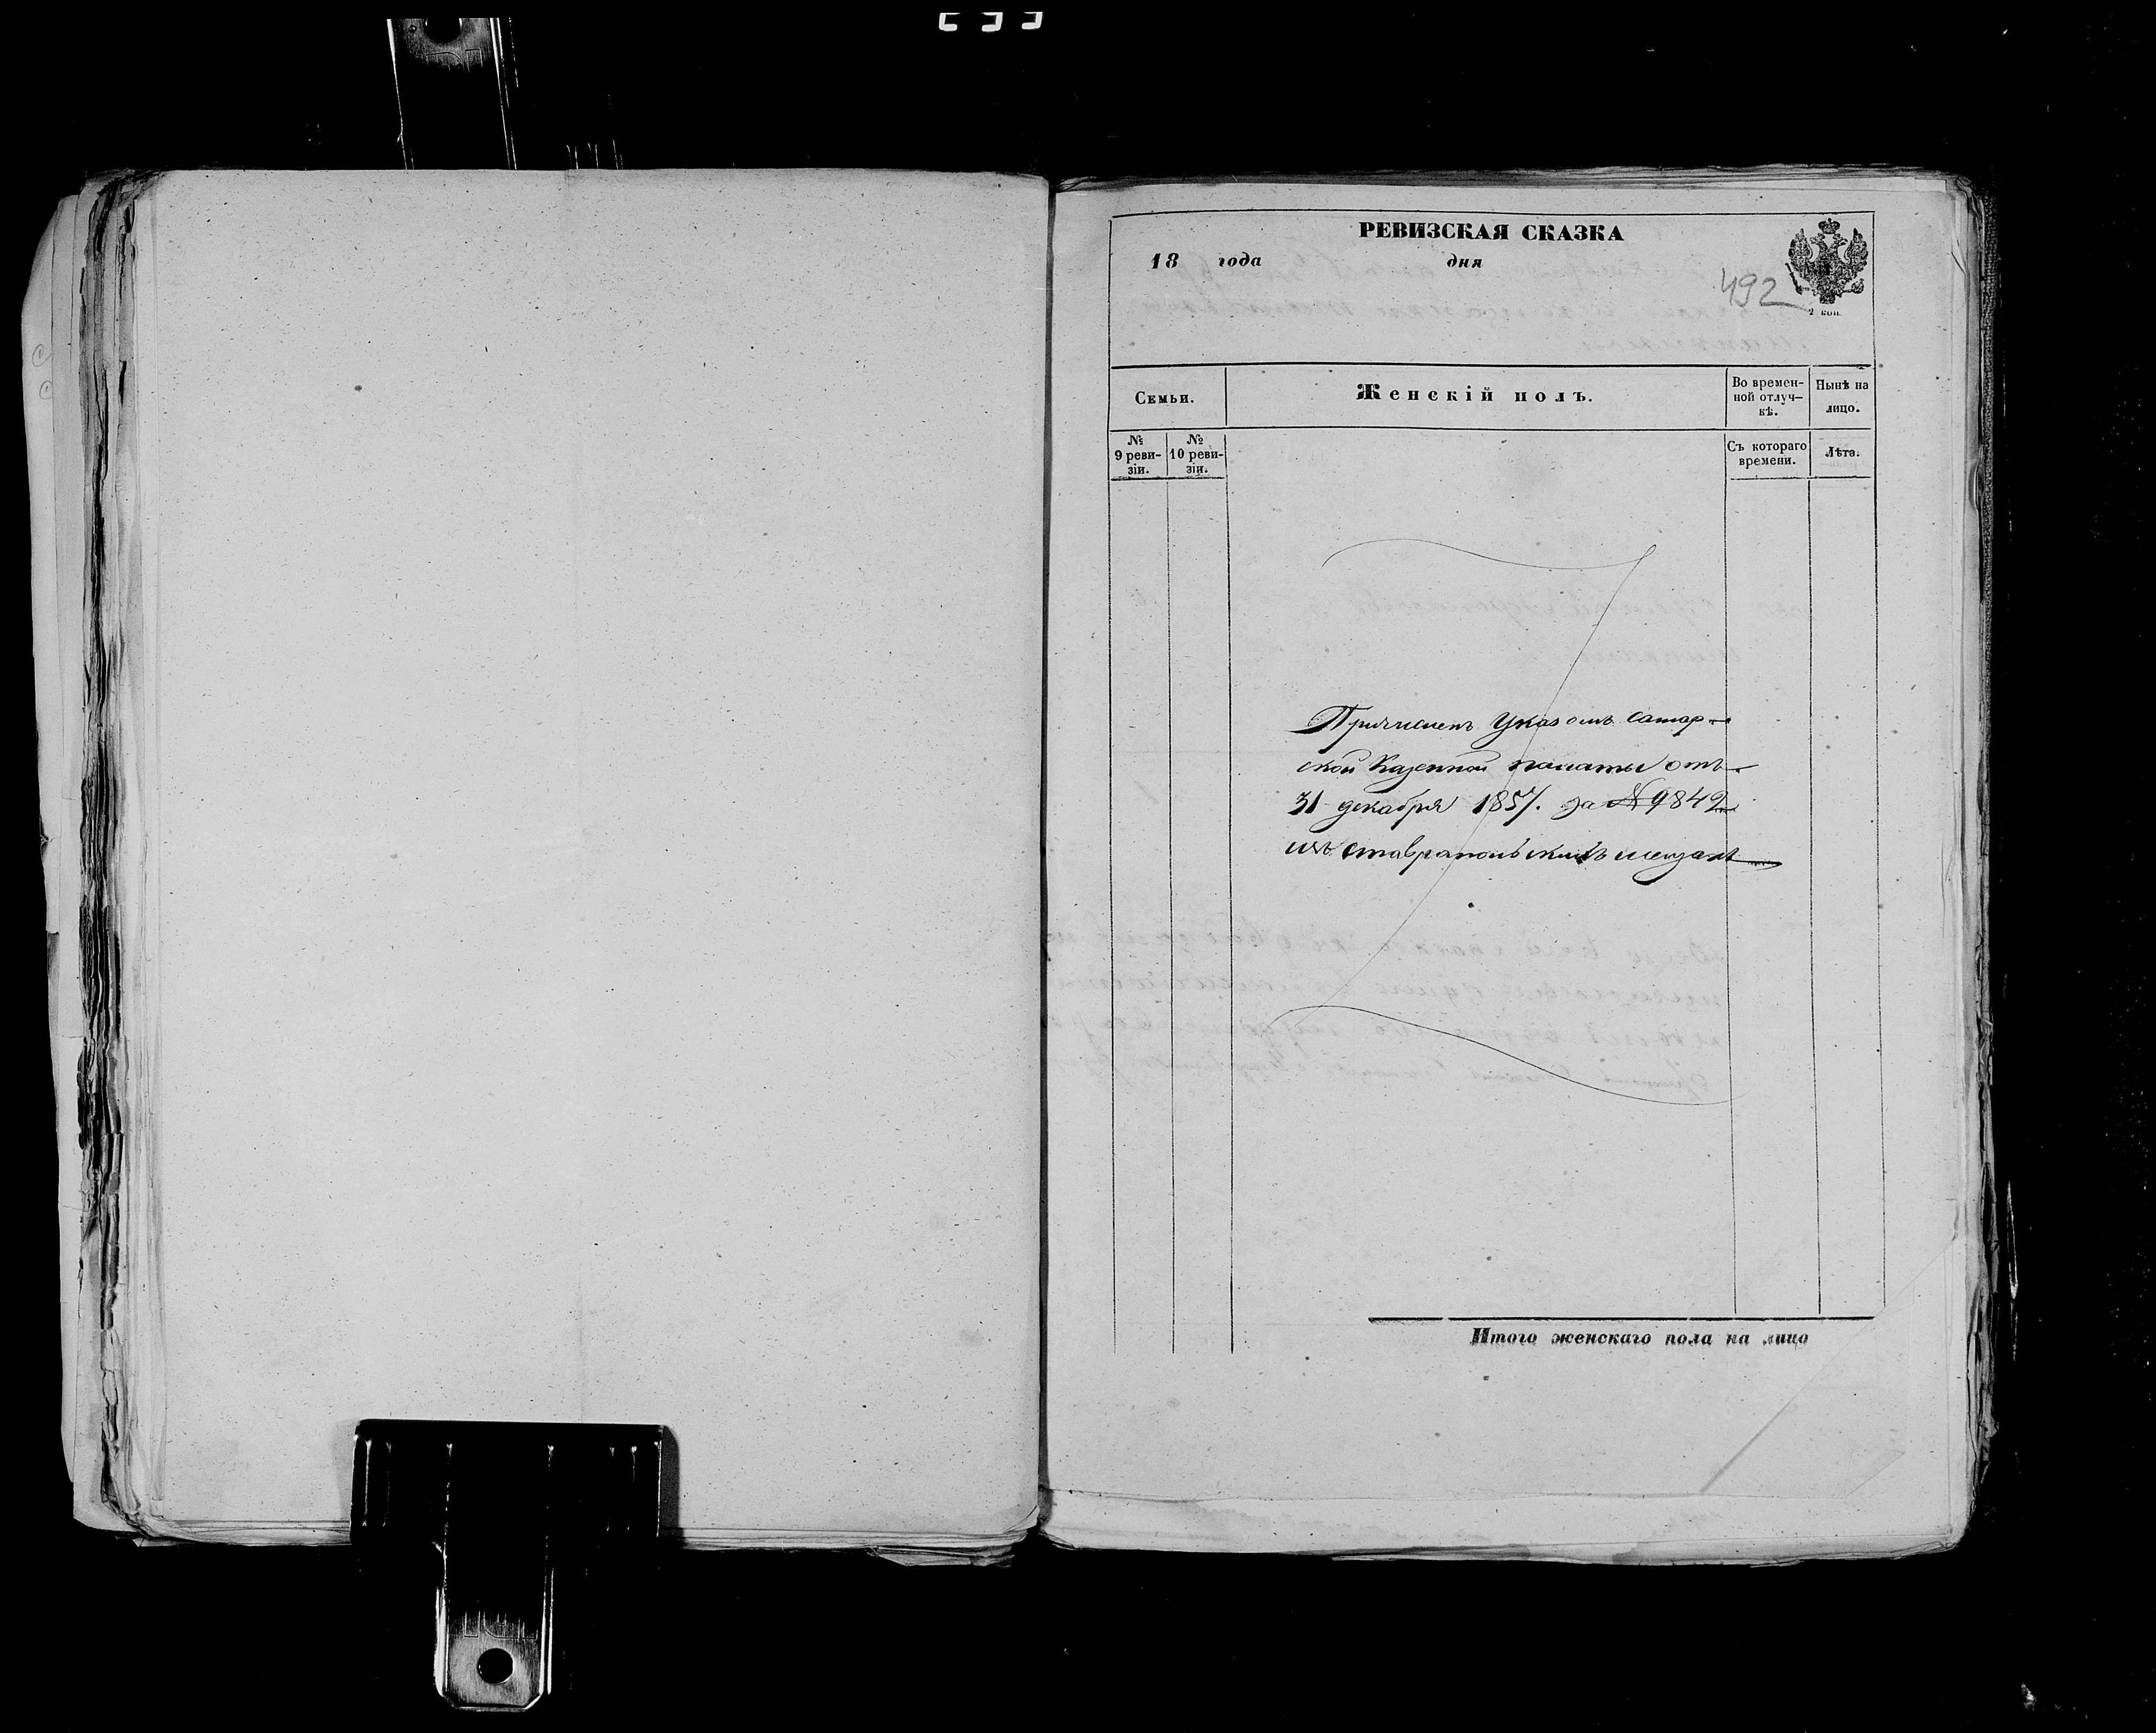 РЕВИЗСКАЯ СКАЗКА
18 года дня
492
2 коп.
Семьи.
Женскій полъ.
Во времен-
ной отлуч-
кѣ.
Нынѣ на
лицо.
№
9 реви-
зіи.
№
10 реви-
зіи.
Съ котораго
времени.
Лѣта.
Причисленъ Указомъ самар-
ской Казенной палаты отъ
31 декабря 1857. за № 9842
изъ ставрапольскихъ мещанъ
Итого женскаго пола на лицо